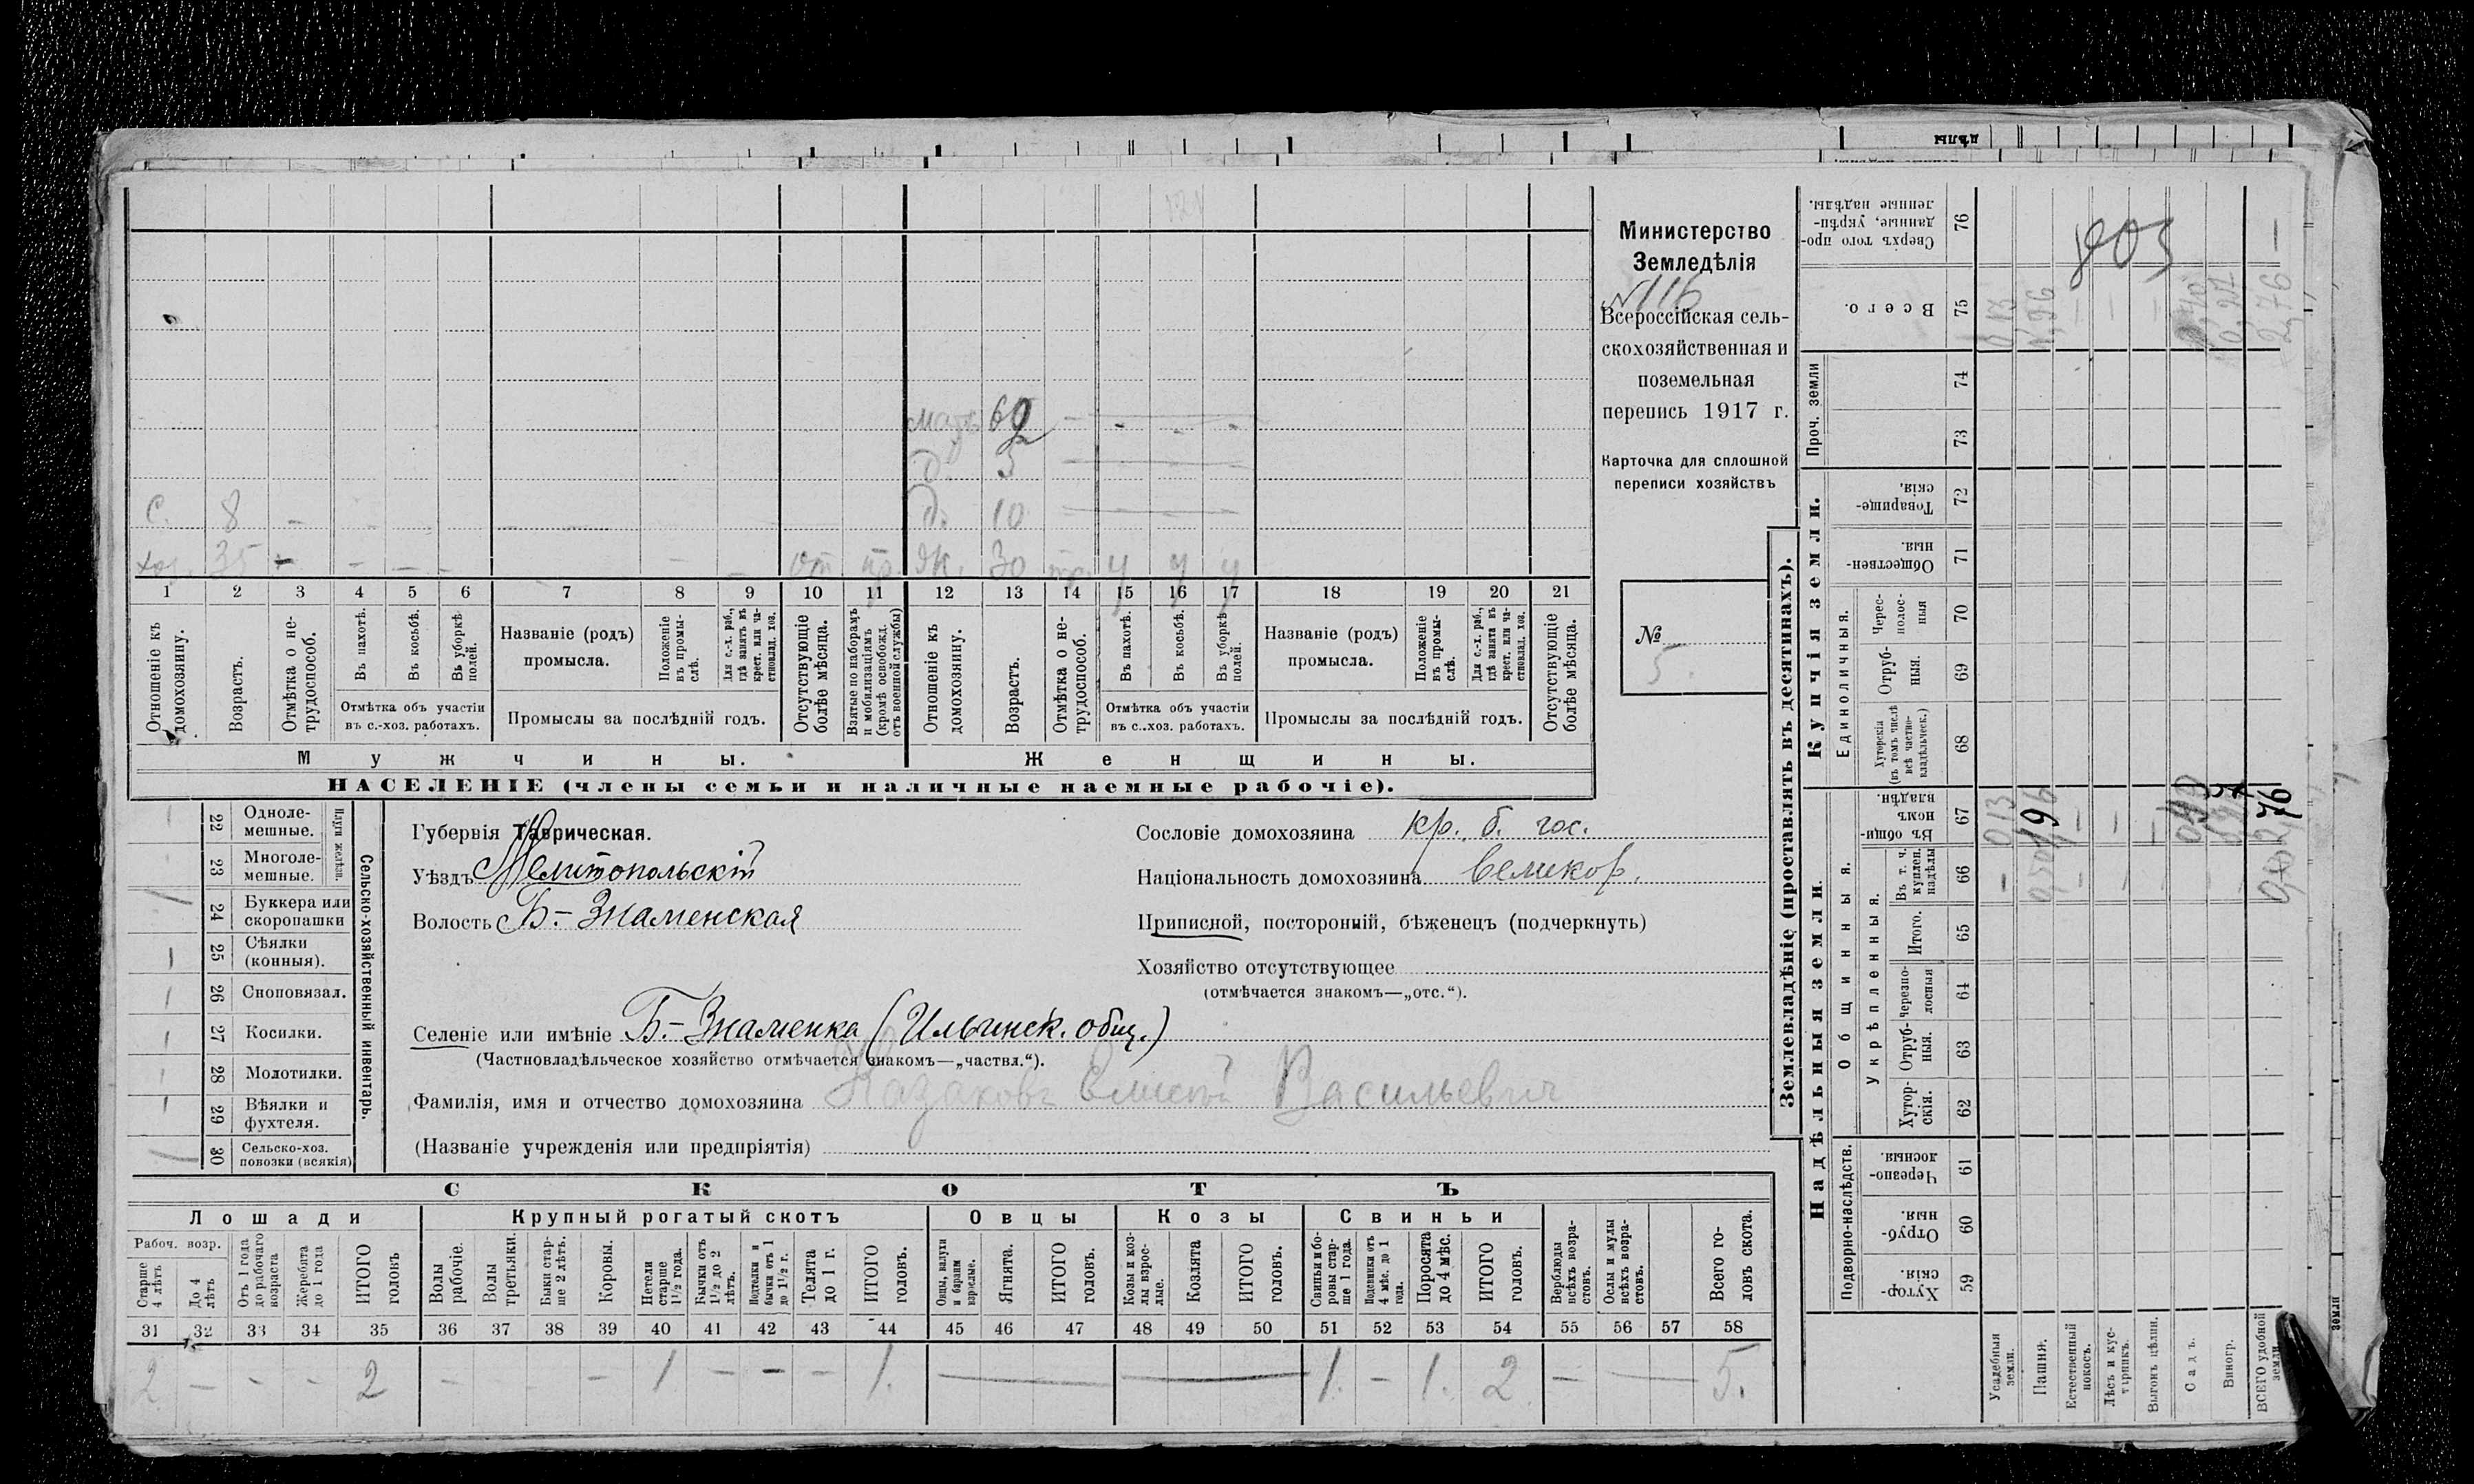 дѣлы
121
мать 69 - - - -
д. 3
с. 8 - д. 10
хоз. 35 от. пр. ж. 30 тр. у у у
1 2 3 4 5 6 7 8 9 10 11 12 13 14 15 16 17 18 19 20 21
Отношеніе къ домохозяину.
Возрастъ.
Отмѣтка о не-трудоспособ.
Въ пахотѣ.
Въ косьбѣ.
Въ уборкѣ полей.
Отмѣтка объ участіи
въ с.-хоз. работахъ.
Названіе (родъ)
промысла.
Положеніе въ промы-слѣ.
Для с.-х. раб., гдѣ занятъ въ крест. или ча-стновлад. хоз.
Промыслы за послѣдній годъ.
Отсутствующіе болѣе мѣсяца.
Взятые по наборамъ и мобилизаціямъ (кромѣ освобожд. отъ военной службы)
Отношеніе къ домохозяину.
Возрастъ.
Отмѣтка о не-трудоспособ.
Въ пахотѣ.
Въ косьбѣ.
Въ уборкѣ полей.
Отмѣтка объ участіи
въ с.-хоз. работахъ.
Названіе (родъ)
промысла.
Положеніе въ промы-слѣ.
Для с.-х. раб., гдѣ занята въ крест. или ча-стновлад. хоз.
Промыслы за послѣдній годъ.
Отсутствующіе болѣе мѣсяца.
Мужчины.
Женщины.
НАСЕЛЕНІЕ (члены семьи и наличные наемные рабочіе).
Министерство
Земледѣлія
N 116
Всероссійская сель-
скохозяйственная и
поземельная
перепись 1917 г.
Карточка для сплошной
переписи хозяйствъ
№
5.
22 Одноле-
мешные.
23 Многоле-
мешные.
Плуги желѣзн.
/ 24 Буккера или
скоропашки
25 Сѣялки
(конныя).
26 Сноповязал.
27 Косилки.
28 Молотилки.
29 Вѣялки и
фухтеля.
30 Сельско-хоз.
повозки (всякія)
Сельско-хозяйственный инвентарь.
Губернія Таврическая.
Уѣздъ Мелитопольскій
Волость Б.-Знаменская
Сословіе домохозяина кр. б. гос.
Національность домохозяина великор.
Приписной, посторонній, бѣженецъ (подчеркнуть)
Хозяйство отсутствующее
(отмѣчается знакомъ—„отс.“).
Селеніе или имѣніе Б.-Знаменка (Ильинск. общ.)
(Частновладѣльческое хозяйство отмѣчается знакомъ—„частвл.“).
Фамилія, имя и отчество домохозяина Казаковъ Елисей Васильевич
(Названіе учрежденія или предпріятія)
СКОТЪ
Лошади Крупный рогатый скотъ Овцы Козы Свиньи
Рабоч. возр.
Старше 4 лѣтъ
До 4 лѣтъ
Отъ 1 года до рабочаго возраста
Жеребята до 1 года
ИТОГО головъ
Волы рабочіе.
Волы третьяки.
Быки стар-ше 2 лѣтъ.
Коровы.
Нетели старше 1½ года.
Бычки отъ 1½ до 2 лѣтъ.
Подтелки и бычки отъ 1 до 1½ г.
Телята до 1 г.
ИТОГО головъ.
Овцы, валухи и бараны взрослые.
Ягнята.
ИТОГО головъ.
Козы и коз-лы взрос-лые.
Козлята
ИТОГО головъ.
Свиньи и бо-ровы стар-ше 1 года.
Подсвинки отъ 4 мѣс. до 1 года.
Поросята до 4 мѣс.
ИТОГО головъ.
Верблюды всѣхъ возра-стовъ.
Ослы и мулы всѣхъ возра-стовъ.
Всего го-ловъ скота.
31 32 33 34 35 36 37 38 39 40 41 42 43 44 45 46 47 48 49 50 51 52 53 54 55 56 57 58
2 - - - 2 - - - - 1 - - - 1. 1. - 1. 2 - 5.
Землевладѣніе (проставлять въ десятинахъ).
Сверхъ того про-данные, укрѣп-ленные надѣлы. 76
Всего. 75
Проч. земли 74 73
Купчія земли.
Товарище-скія. 72
Обществен-ныя. 71
Единоличныя.
Черес-полос-ныя 70
Отруб-ныя. 69
Хуторскія (въ томъ числѣ всѣ частно-владѣльческ.) 68
Надѣльныя земли.
Общинныя.
Въ общин-номъ владѣн. 67
Укрѣпленныя.
Въ т. ч. куплен. надѣлы 66
Итого. 65
Черезпо-лосныя 64
Отруб-ныя. 63
Хутор-скія. 62
Подворно-наслѣдств.
Черезпо-лосныя. 61
Отруб-ныя. 60
Хутор-скія. 59
Усадебныя земли.
Пашня.
Естественный покосъ.
Лѣсъ и кус-тарникъ.
Выгонъ цѣлин.
Садъ.
Виногр.
ВСЕГО удобной земли.
803
0,13
2,76
013
76
земли